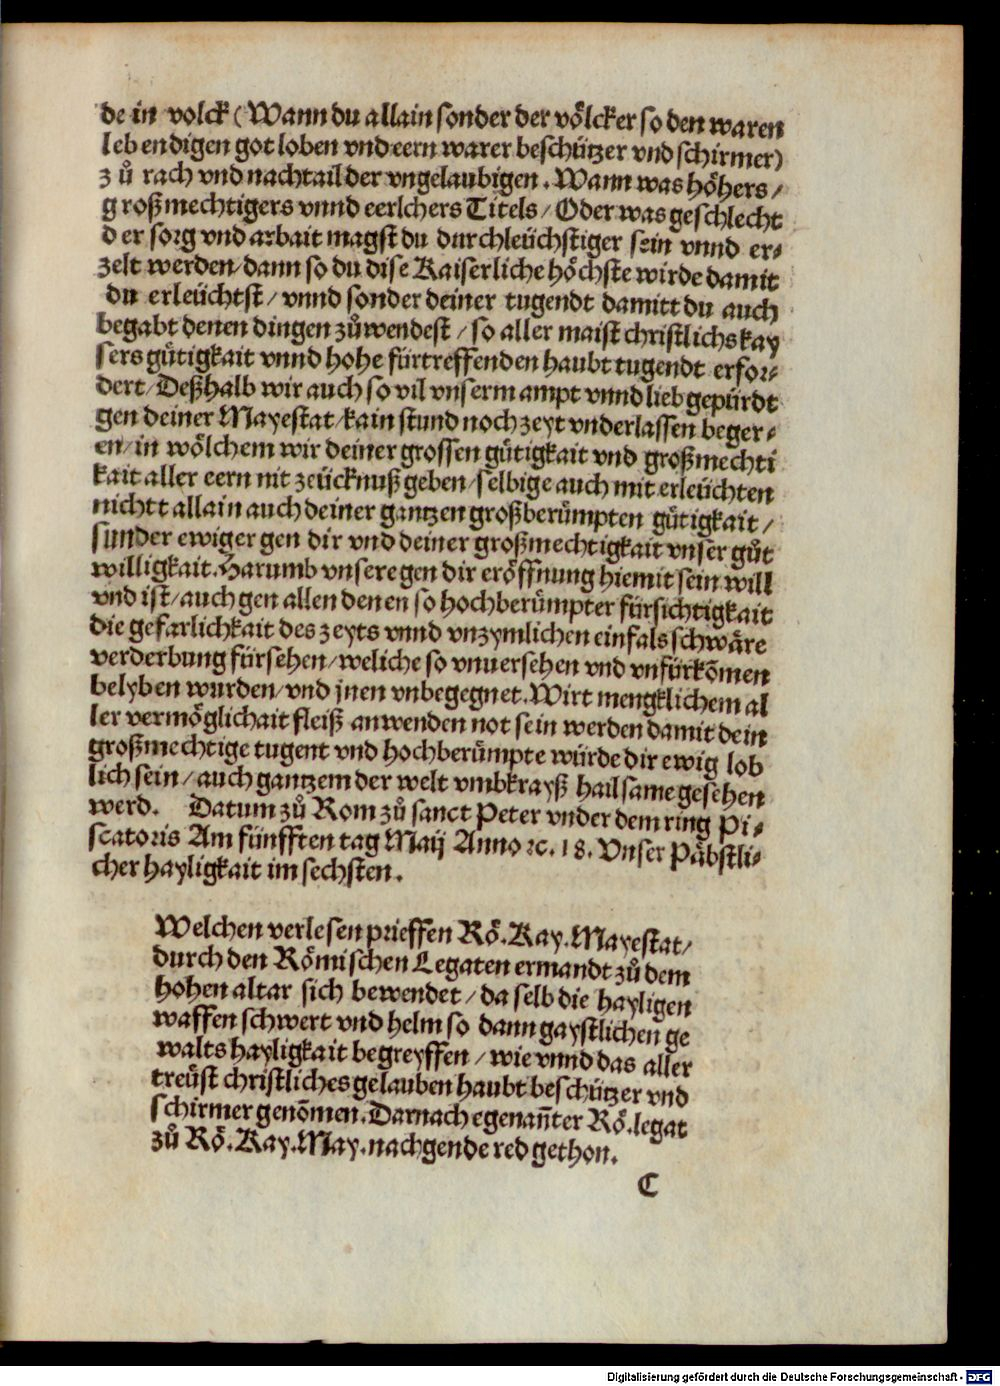 de in volck (Wann du allain sonder der voͤlcker so den waren
leb endigen got loben vnd eern warer beschützer vnd schirmer)
z uͦ rach vnd nachtail der vngelaubigen. Wann was hoͤhers /
g roßmechtigers vnnd eerlchers Titels / Oder was geschlecht
d er sorg vnd arbait magst du durchleüchstiger sein vnnd er⸗
zelt werden / dann so du dise Kaiserliche hoͤchste wirde damit
du erleüchtst / vnnd sonder deiner tugendt damitt du auch
begabt denen dingen zuͦwendest / so aller maist christlichs kay
sers gütigkait vnnd hohe fürtreffenden haubt tugendt erfor⸗
dert / Deßhalb wir auch so vil vnserm ampt vnnd lieb gepürdt
gen deiner Mayestat / kain stund noch zeyt vnderlassen beger⸗
en / in woͤlchem wir deiner grossen gütigkait vnd großmechti
kait aller eern nit zeücknuß geben / selbige auch mit erleüchten
nichtt allain auch deiner gantzen großberümpten gütigkait /
sunder ewiger gen dir vnd deiner großmechtigkait vnser guͦt
willigkait. Harumb vnsere gen dir eroͤffnung hiemit sein will
vnd ist / auch gen allen denen so hochberümpter fürsichtigkait
die gefarlichkait des zeyts vnnd vnzymlichen einfals schwaͤre
verderbung fürsehen / weliche so vnuersehen vnd vnfürkōmen
belyben wurden / vnd jnen vnbegegnet. Wirt mengklichem al
ler vermoͤglichait fleiß anwenden not sein werden damit dein
großmechtige tugent vnd hochberümpte würde dir ewig lob
lich sein / auch gantzem der welt vmbkrayß hailsame gesehen
werd. Datum zuͦ Rom zuͦ sanct Peter vnder dem ring Pi⸗
scatoris Am fünfften tag Maij Anno ꝛc. 18. Vnser Paͤbstli⸗
cher hayligkait im sechsten.
Welchen verlesen prieffen Roͤ. Kay. Mayestat /
durch den Roͤmischen Legaten ermandt zuͦ dem
hohen altar sich bewendet / da selb die hayligen
waffen schwert vnd helm so dann gaystlichen ge
walts hayligkait begreyffen / wie vnnd das aller
treüst christliches gelauben haubt beschützer vnd
schirmer genōmen. Darnach egenan̄ter Roͤ. legat
zuͦ Roͤ. Kay. May. nachgende red gethon.
C
Digitalisierung gefördert durch die Deutsche Forschungsgemeinschaft - DFG